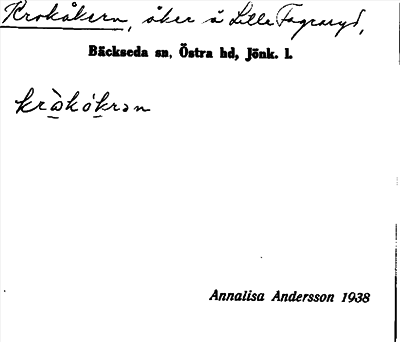 Krokåkern, åker å Lilla Fagraryd,
Bäckseda sn, Östra hd, Jönk. l.
kròkókrən
Annalisa Andersson 1938